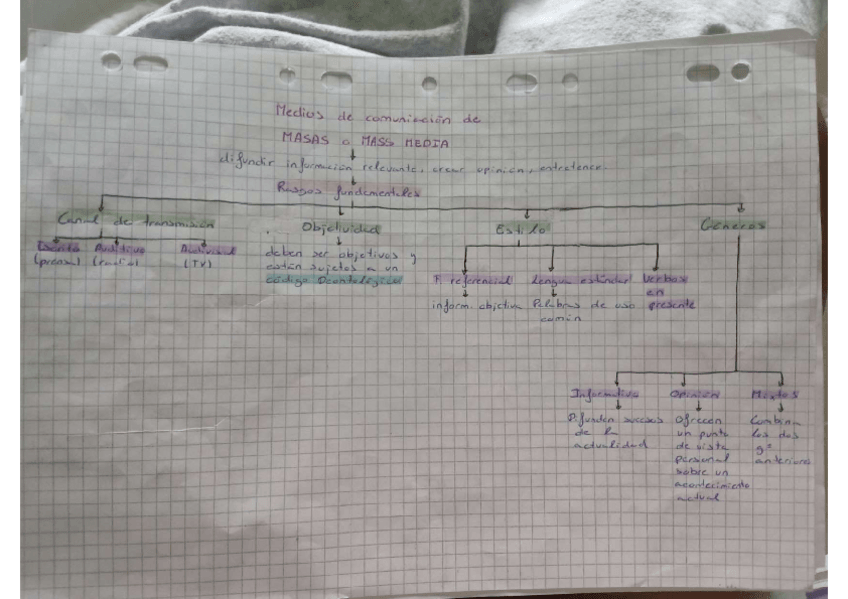 Medios de comunicación de
MASAS o MASS MEDIA
difundir información relevante, crear opinión, entretener.
Rasgos fundamentales
Canal de transmisión
Objetividad
Estilo
Géneros
Escrito Auditivo Audiovisual
(prensa) (radio) (TV)
deben ser objetivos y
están sujetos a un
código Deontológico
F. referencial Lengua estándar Verbos
en
presente
inform. objetiva Palabras de uso
común
Informativo Opinión Mixtos
Difunden sucesos
de la
actualidad
Ofrecen
un punto
de vista
personal
sobre un
acontecimiento
actual
Combina
los dos
gº
anteriores